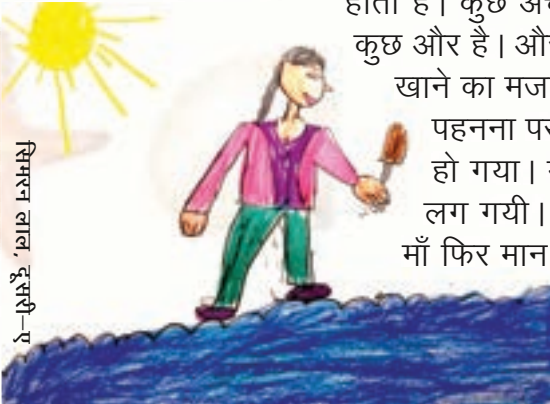 होता है। कुछ
कुछ और है। और
खाने का मज
पहनना पस
हो गया।
लग गयी।
माँ फिर मान
सिमरन लाल, दूसरी–ए